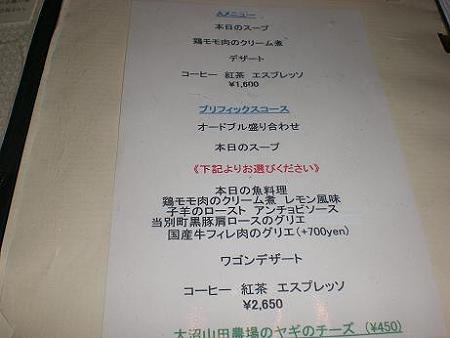 Aメニュー
本日のスープ
鶏モモ肉のクリーム煮
デザート
コーヒー 紅茶 エスプレッソ
¥1,600
プリフィックスコース
オードブル盛り合わせ
本日のスープ
《下記よりお選びください》
本日の魚料理
鶏モモ肉のクリーム煮 レモン風味
子羊のロースト アンチョビソース
当別町黒豚肩ロースのグリエ
国産牛フィレ肉のグリエ(+700yen)
ワゴンデザート
コーヒー 紅茶 エスプレッソ
¥2,650
大沼山田農場のヤギのチーズ (¥450)